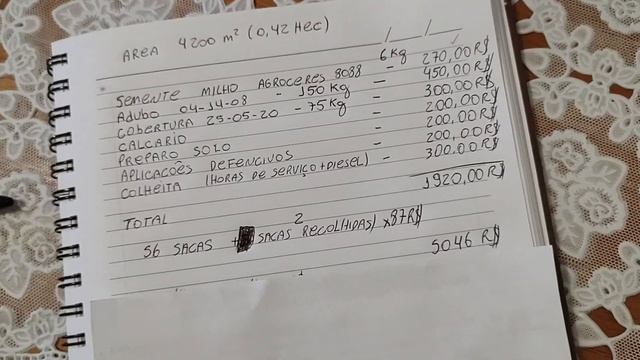 AREA 4200 m² (0,42 HEC)
/ /
SEMENTE MILHO AGROCERES 8088 6 Kg - 270,00 R$
ADUBO 04-14-08 - 150 Kg - 450,00 R$
COBERTURA 25-05-20 - 75 Kg - 300,00 R$
CALCARIO - 200,00 R$
PREPARO SOLO 200,00 R$
APLICAÇÕES DEFENCIVOS - 200,00 R$
COLHEITA (HORAS DE SERVIÇO + DIESEL) - 300.00 R$
TOTAL 1920,00 R$
56 SACAS + 2 SACAS RECOLHIDAS) x 87 R$
5046 R$